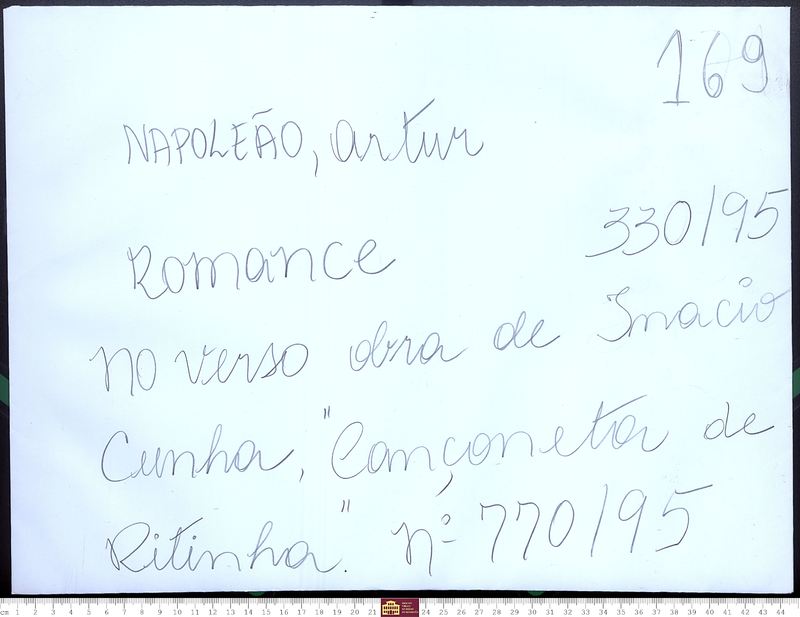 169
NAPOLEÃO, Artur
330/95
Romance
no verso obra de Inacio
Cunha, "Cançoneta de
Ritinha". nº 770/95
cm 1 2 3 4 5 6 7 8 9 10 11 12 13 14 15 16 17 18 19 20 21 24 25 26 27 28 29 30 31 32 33 34 35 36 37 38 39 40 41 42 43 44